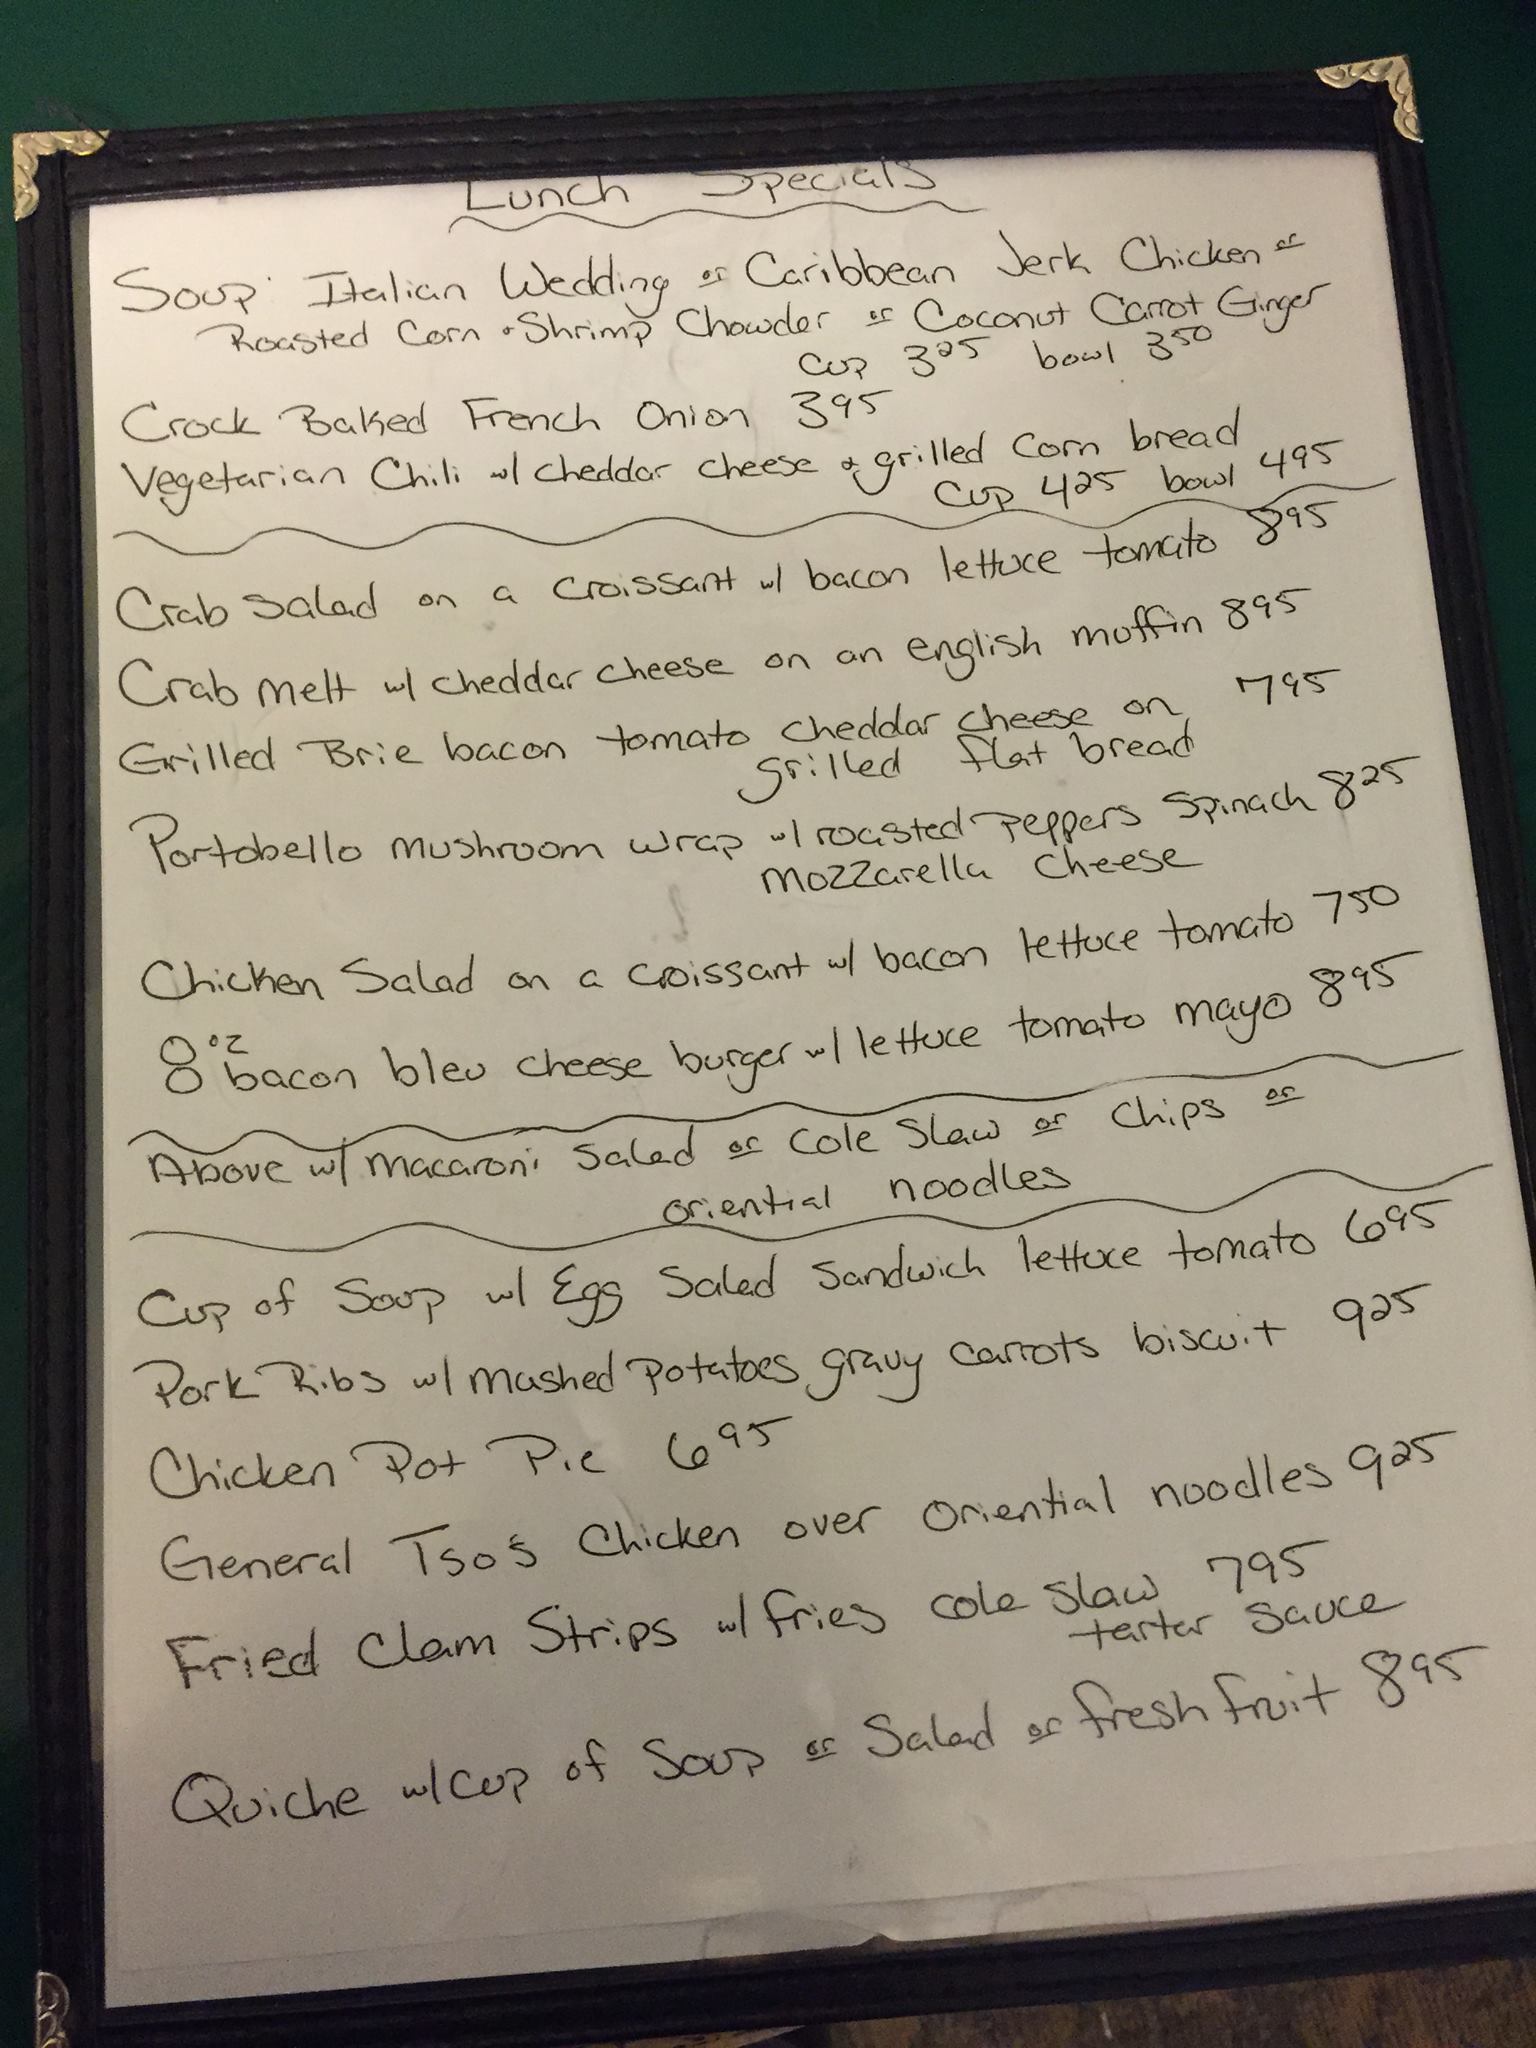 Lunch Specials
Soup: Italian Wedding or Caribbean Jerk Chicken or
Roasted Corn & Shrimp Chowder or Coconut Carrot Ginger
cup 3 25 bowl 3 50
Crock Baked French Onion 3 95
Vegetarian Chili w/ cheddar cheese & grilled corn bread
cup 4 25 bowl 4 95
Crab Salad on a croissant w/ bacon lettuce tomato 8 95
Crab melt w/ cheddar cheese on an english muffin 8 95
Grilled Brie bacon tomato cheddar cheese on 7 95
grilled flat bread
Portobello mushroom wrap w/ roasted peppers spinach 8 25
mozzarella cheese
Chicken Salad on a croissant w/ bacon lettuce tomato 7 50
8 oz bacon bleu cheese burger w/ lettuce tomato mayo 8 95
Above w/ macaroni salad or cole slaw or chips or
oriential noodles
Cup of Soup w/ Egg Salad Sandwich lettuce tomato 6 95
Pork Ribs w/ mashed potatoes gravy carrots biscuit 9 25
Chicken Pot Pie 6 95
General Tso's Chicken over oriential noodles 9 25
Fried Clam Strips w/ fries cole slaw 7 95
tarter sauce
Quiche w/ cup of Soup or Salad or fresh fruit 8 95